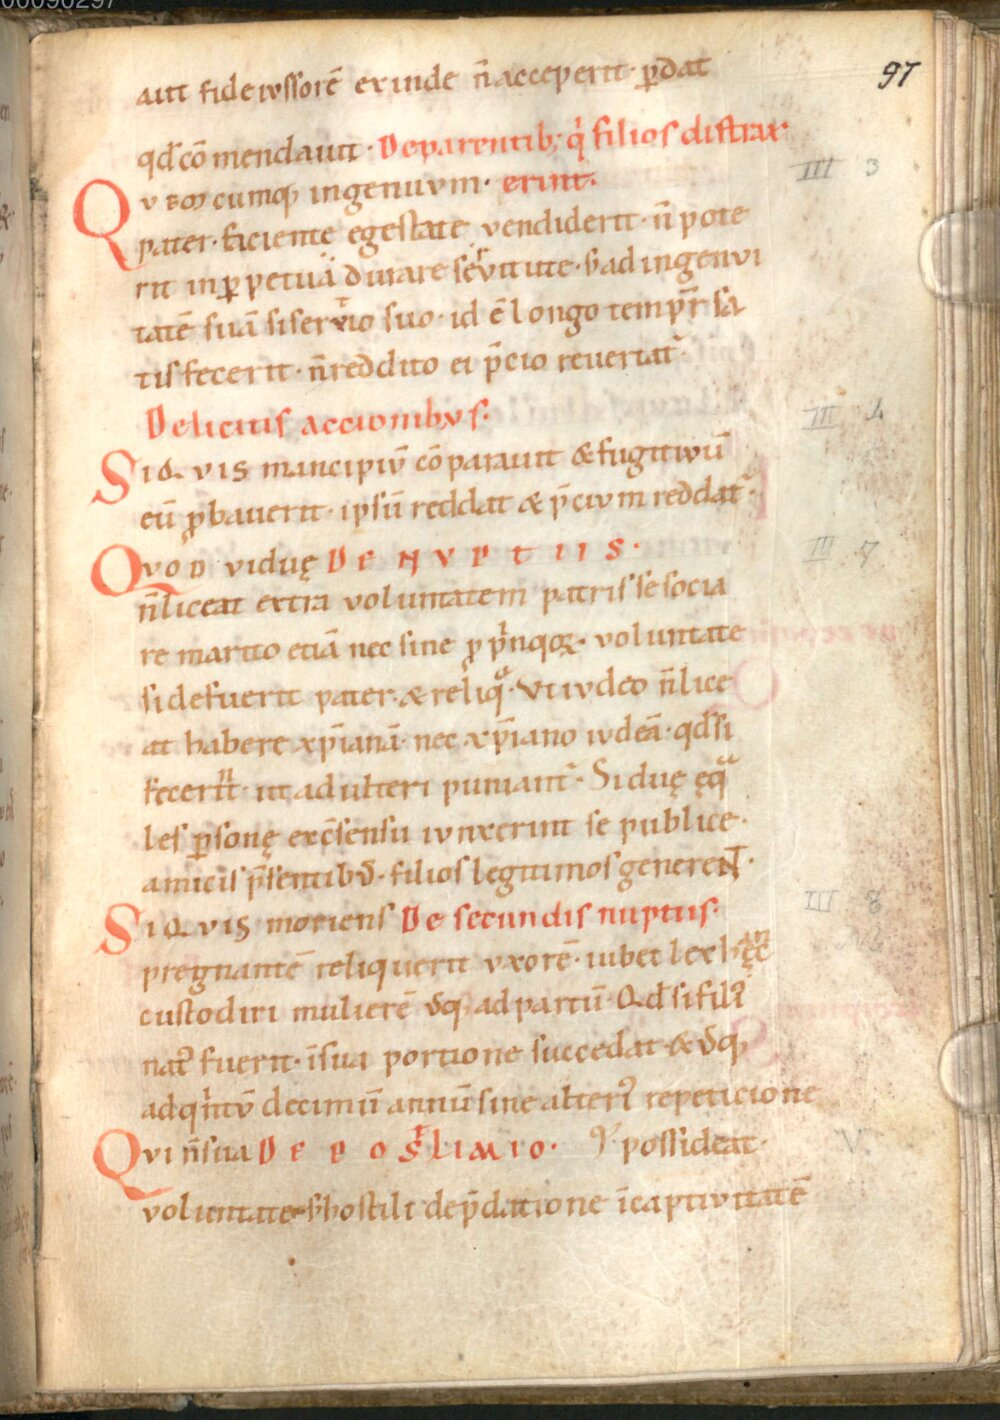 00090297
97
aut fideiussorē exinde n̄ acceperit· ꝑdat
qđ cōmendauit· De parentib; q̇ filios distrax
erint.
III 3
Quēcumq; ingenuum·
pater· faciente egestate vendiderit· n̄ pote
rit in ꝑpetuā durare seruitute· s; ad ingenui
tatē suā si seruio suo· id ē longo tempr̄ sa
tis fecerit· n̄ reddito ei p̄cio reuertat᷑
De licitis accionibus· III
Si quis mancipiū cōparauit & fugitiuū
eū ꝓbauerit· ipsū reddat & p̄cium reddat᷑·
Quod viduę DE NVPTIIS· III 7
n̄ liceat extra voluntatem patris se socia
re marito etiā nec sine ꝓpinqoꝝ· voluntate
si defuerit pater· & reliq̃· Vt iudeo n̄ lice
at habere xp̄ianā· nec xp̄iano iudeā· qđ si
fecerīt· ut adulteri puniant᷑· Si duę ęq̃
les ꝑsonę ex c̄sensu iunxerint se publice·
amicis p̄sentibus· filios legitimos generent·
Si quis moriens De secundis nuptiis· III 8
pregnantē reliquerit uxorē· iubet lex hęc
custodiri mulierē usq; ad partū· Qđ si filiꝰ
natꝰ fuerit· ī sua portione succedat & usq;
ad qͥntū decimū annū sine alteriꝰ repeticione
possideat·
Qui n̄ sua DE POSTLIMIO· V
voluntate s; hostili dep̄datione ī captiuitatē